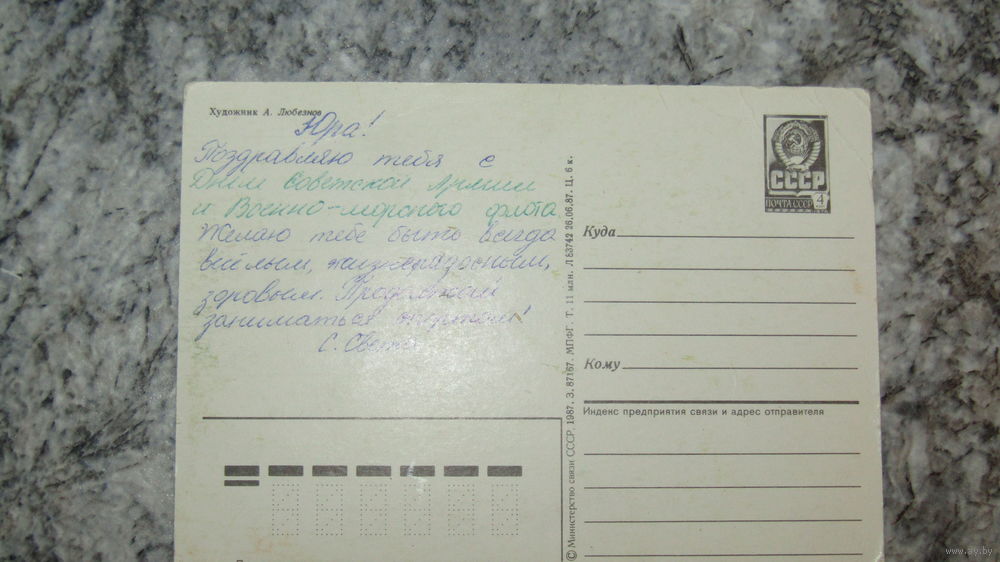 Художник А. Любезнов
Юра!
Поздравляю тебя с
Днём Советской Армии
и Военно-морского флота.
Желаю тебе быть всегда
весёлым, жизнерадостным,
здоровым. Продолжай
заниматься спортом!
С. Света
© Министерство связи СССР, 1987. З. 87167. МПФГ. Т. 11 млн. Л 83742 26.06.87. Ц. 6 к.
СССР
ПОЧТА СССР 4
Куда
Кому
Индекс предприятия связи и адрес отправителя
www.ay.by